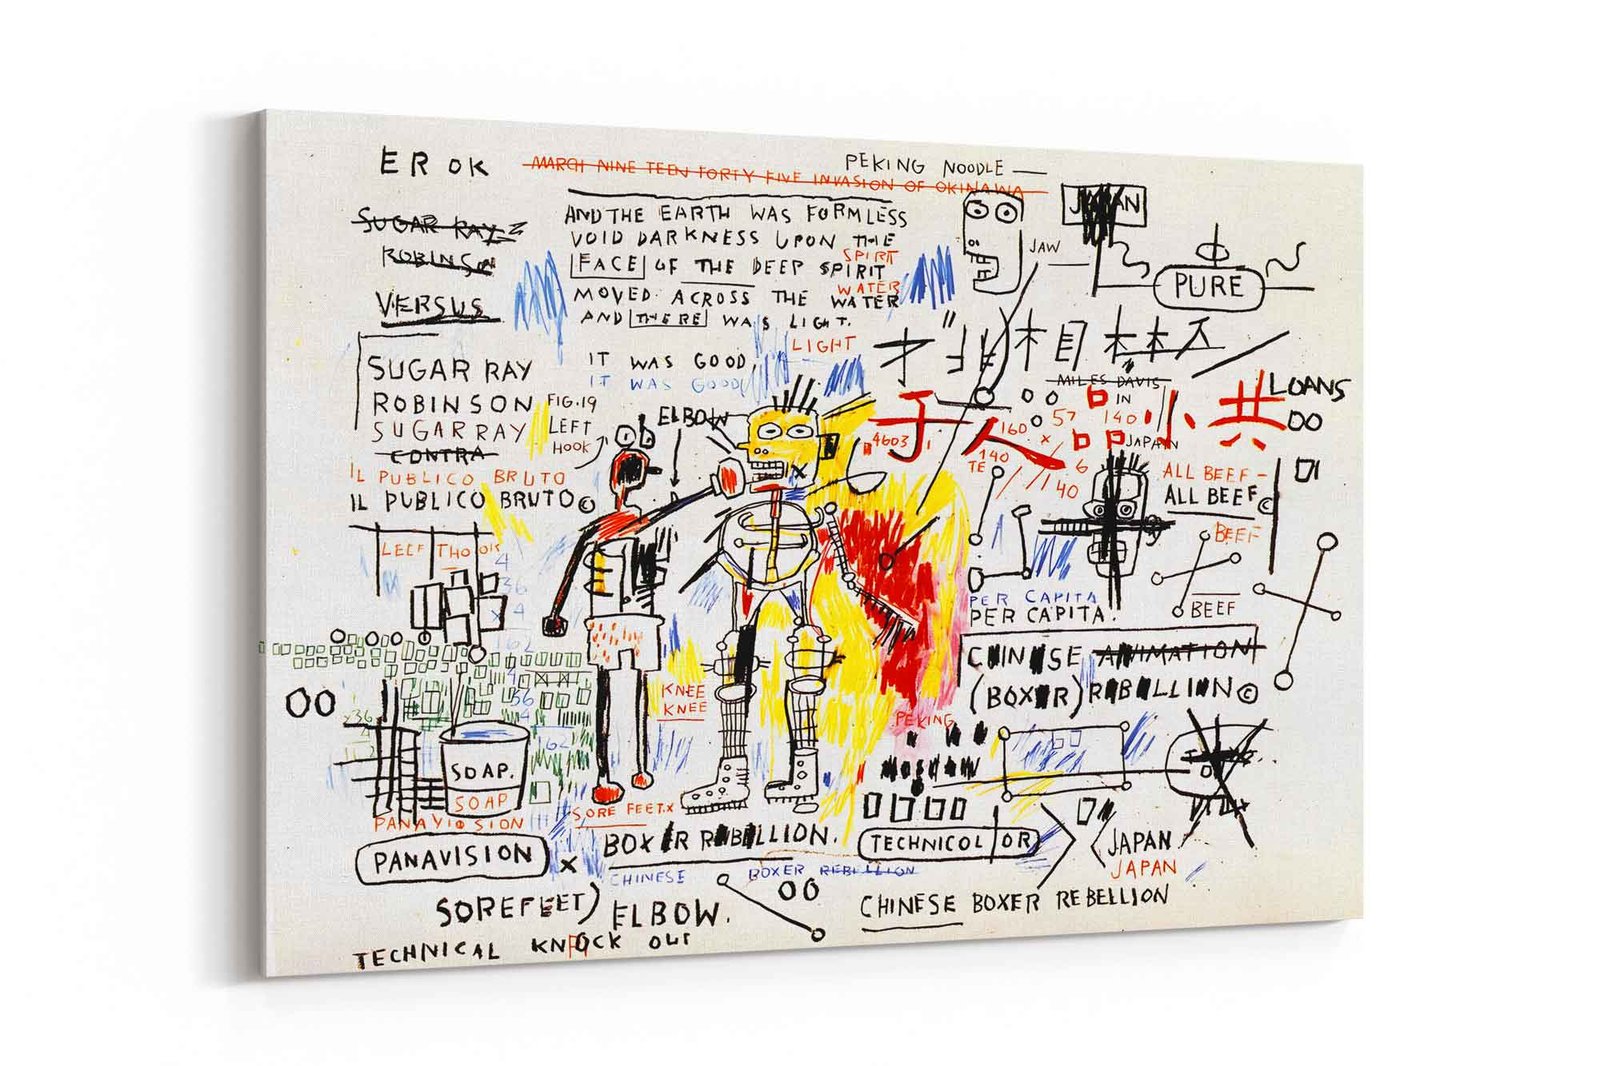 ER OK
PEKING NOODLE
MARCH NINE TEEN FORTY FIVE INVASION OF OKINAWA
SUGAR RAY
ROBINSON
VERSUS
AND THE EARTH WAS FORMLESS
VOID DARKNESS UPON THE
SPIRIT
FACE OF THE DEEP SPIRIT
WATER
MOVED ACROSS THE WATER
AND THERE WAS LIGHT.
LIGHT
IT WAS GOOD
IT WAS GOOD
JAW
JAPAN
PURE
SUGAR RAY
ROBINSON
SUGAR RAY
CONTRA
IL PUBLICO BRUTO
IL PUBLICO BRUTO©
FIG.19
LEFT
HOOK
ELBOW
MILES DAVIS
IN
JAPAN
LOANS
OO
子人品小共
4603
160
57
140
x
6
140
TE
40
ALL BEEF-
ALL BEEF©
BEEF
BEEF
PER CAPITA
PER CAPITA.
CHINESE ANIMATION
(BOXER) REBELLION©
PEKING
MOSCOW
OO
KNEE
KNEE
SOAP.
SOAP
SORE FEET.X
PANAVISION
x
BOXER REBELLION.
TECHNICOLOR
JAPAN
JAPAN
CHINESE
BOXER REBELLION
OO
SOREFEET)
ELBOW.
CHINESE BOXER REBELLION
TECHNICAL KNOCK OUT